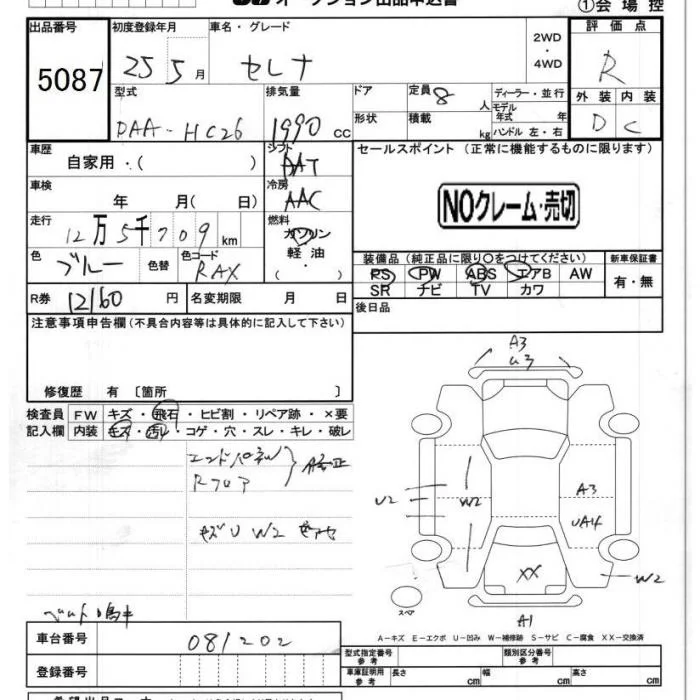 オークション出品申込書
①会場控
出品番号 5087
初度登録年月 25 5月
車名・グレード セレナ
2WD・4WD
評価点 R
型式 DAA-HC26
排気量 1990 cc
ドア
形状
定員 8人
積載 kg
ディーラー・並行
モデル年式 年
ハンドル 左・右
外装 内装
D C
車歴 自家用・( )
シフト AT
セールスポイント(正常に機能するものに限ります)
NOクレーム・売切
車検 年 月( 日)
冷房 AAC
走行 12万5千709km
燃料 ガソリン 軽油・( )
色 ブルー 色替
色コード RAX
装備品(純正品に限り○をつけてください)
新車保証書
PS PW ABS エアB AW
SR ナビ TV カワ
有・無
R券 12160円
名変期限 月 日
後日品
注意事項申告欄(不具合内容等は具体的に記入して下さい)
修復歴 有〔箇所 〕
検査員記入欄
FW キズ・飛石・ヒビ割・リペア跡・×要
内装 キズ・汚れ・コゲ・穴・スレ・キレ・破レ
エンドパネルW
Rフロア
修正
キズU W2
A3
U3
U2
W2
A3
UA4
XX
W2
A1
スペア
A-キズ E-エクボ U-凹み W-補修跡 S-サビ C-腐食 XX-交換済
車台番号 081202
登録番号
型式指定番号 参考
類別区分番号 参考
車庫証明用 参考 長さ cm 幅 cm 高さ cm